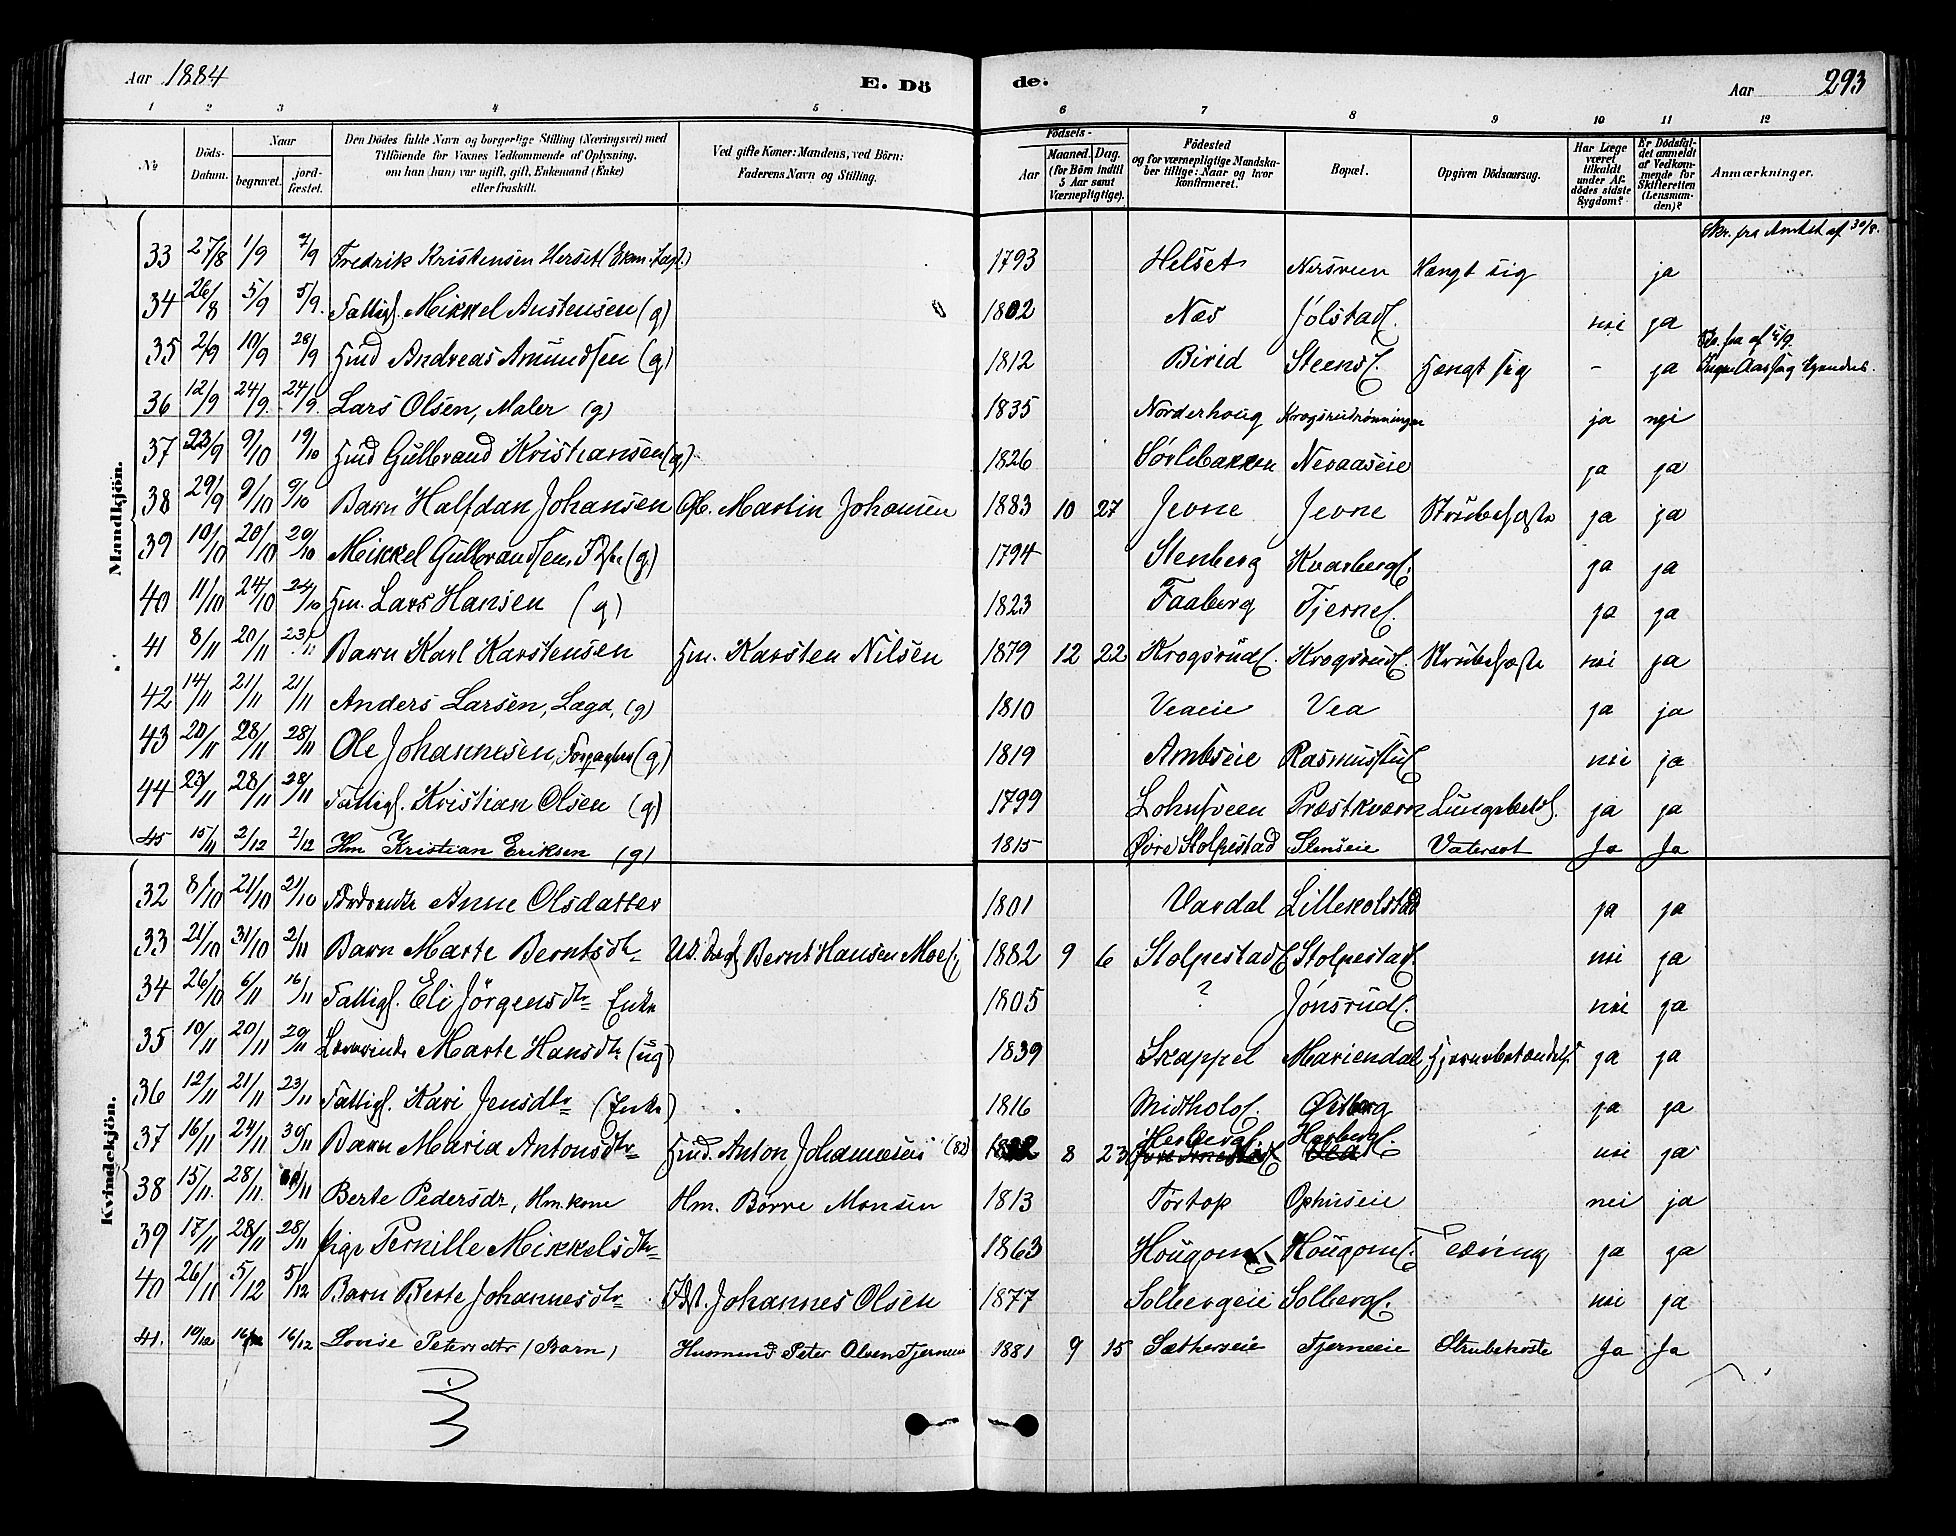 Aar 1884 E. Dö de. Aar 293
1 2 3 4 5 6 7 8 9 10 11 12
No Döds-Datum. Naar begravet. jord-fæstet. Den Dödes fulde Navn og borgerlige Stilling (Næringsvei) med Tilföiende for Voxnes Vedkommende af Oplysning, om han (hun) var ugift, gift, Enkemand (Enke) eller fraskilt. Ved gifte Koner: Mandens, ved Börn: Faderens Navn og Stilling. Födsels- Aar Maaned. Dag. (for Börn indtil 5 Aar samt Værnepligtige). Födested og for værnepligtige Mandskaber tillige: Naar og hvor konfirmeret. Bopæl. Opgiven Dödsaarsag. Har Læge været tilkaldt under Afdödes sidste Sygdom? Er Dödsfaldet anmeldt af Vedkommende for Skifteretten (Lensmanden)? Anmærkninger.
Mandkjön.
Skr. fra Amtet af 30/8.
33 27/8 1/9 7/9 Fredrik Kristensen Herset (Ekm. Lægd.) 1793 Helset Nersveen Hængt sig ja
34 26/8 5/9 5/9. Fattigl. Mikkel Anstensen (g) 1802 Næs Jølstadl. nei ja
35 2/9 10/9 28/9 Hmd Andreas Amundsen (g) 1812 Birid Steensl. Hængt sig - ja
36 12/9 24/9. 24/9. Lars Olsen, Maler (g) 1835 Norderhoug Krogsrudrønningen ja nei
37 23/9 9/10 19/10 Hmd Gulbrand Kristiansen (g) 1826 Sørlibakken Nevaaseie ja ja
38 29/9 9/10 9/10 Barn Halfdan Johansen Gb. Martin Johansen 1883 10 27 Jevne Jevne Strubehoste ja ja
39 10/10 20/10 20/10 Mikkel Gulbrandsen, (g) 1794 Stenberg Kvarbergl. ja ja
40 11/10 24/10 24/10 Hm. Lars Hansen (g) 1823 Faaberg Tjernel. ja ja
41 8/11 20/11 23/11 Barn Karl Karstensen Hm. Karsten Nilsen 1879 12 22 Krogsrudl. Krogsrudl. Strubehoste nei ja
42 14/11 21/11 21/11 Anders Larsen, Lægd, (g) 1810 Veaeie Vea ja ja
43 20/11 28/11 28/11 Ole Johannesen, Forpagter (g) 1819 Ambseie Rasmusstul nei ja
44 23/11 28/11 28/11 Fattigl. Kristian Olsen (g) 1799 Lohnsveen Præstkværn Lungebet. ja ja
45 15/11 2/12 2/12 Hm Kristian Eriksen (g) 1815 Øvre Stolpestad Stenseie Vatersot Ja Ja
Kvindekjön.
32 8/10 21/10 21/10 Anne Olsdatter 1801 Vardal Lillekolstad ja ja
33 21/10 31/10 2/11 Barn Marte Berntsdtr Bernt Hansen Moe 1882 9 6 Stolpestadl Stolpestadl nei ja
34 26/10 6/11 16/11 Fattigl. Eli Jörgensdtr Enke 1805 ? Jønsrudl. nei ja
35 10/11 20/11 20/11 Marte Hansdtr (ug) 1839 Skappel Mariendal Hjernebetændelse ja ja
36 12/11 21/11 23/11 Fattigl. Kari Jensdtr (Enke) 1816 Midtholol. Østberg ja ja
37 16/11 24/11 30/11 Barn Maria Antonsdtr Hmd. Anton Johannesen (82) 1882 8 23 Herbergl. Herbergl. nei ja
38 15/11. 28/11. /11 Berte Pedersdr, Hm.kone Hm. Børre Monsen 1813 Tortop Ophuseie nei ja
39 17/11 28/11 28/11 Pige Pernille Mikkelsdtr 1863 Hougoml. Hougoml. Tæring ja ja
40 26/11 5/12 5/12 Barn Berte Johannesdtr Johannes Olsen 1877 Solbergeie Solbergl. nei ja
41. 10/12 16/12 16/12 Lovise Petersdtr (Barn) Husmand Peter Olsen Tjerneeie 1881 9 15 Sætherseie Tjerneeie Strubehoste Ja Ja